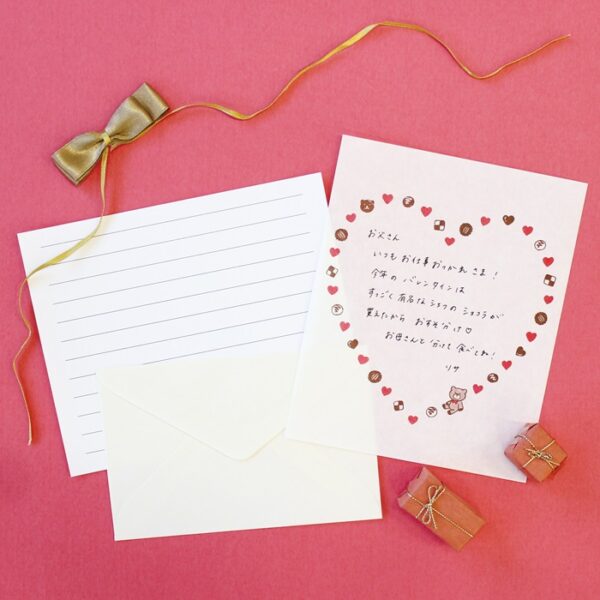 お父さん
いつもお仕事おつかれさま！
今年のバレンタインは
すっごく有名なシェフのショコラが
買えたから おすそ分け♡
お母さんと分けて食べてね！
リサ